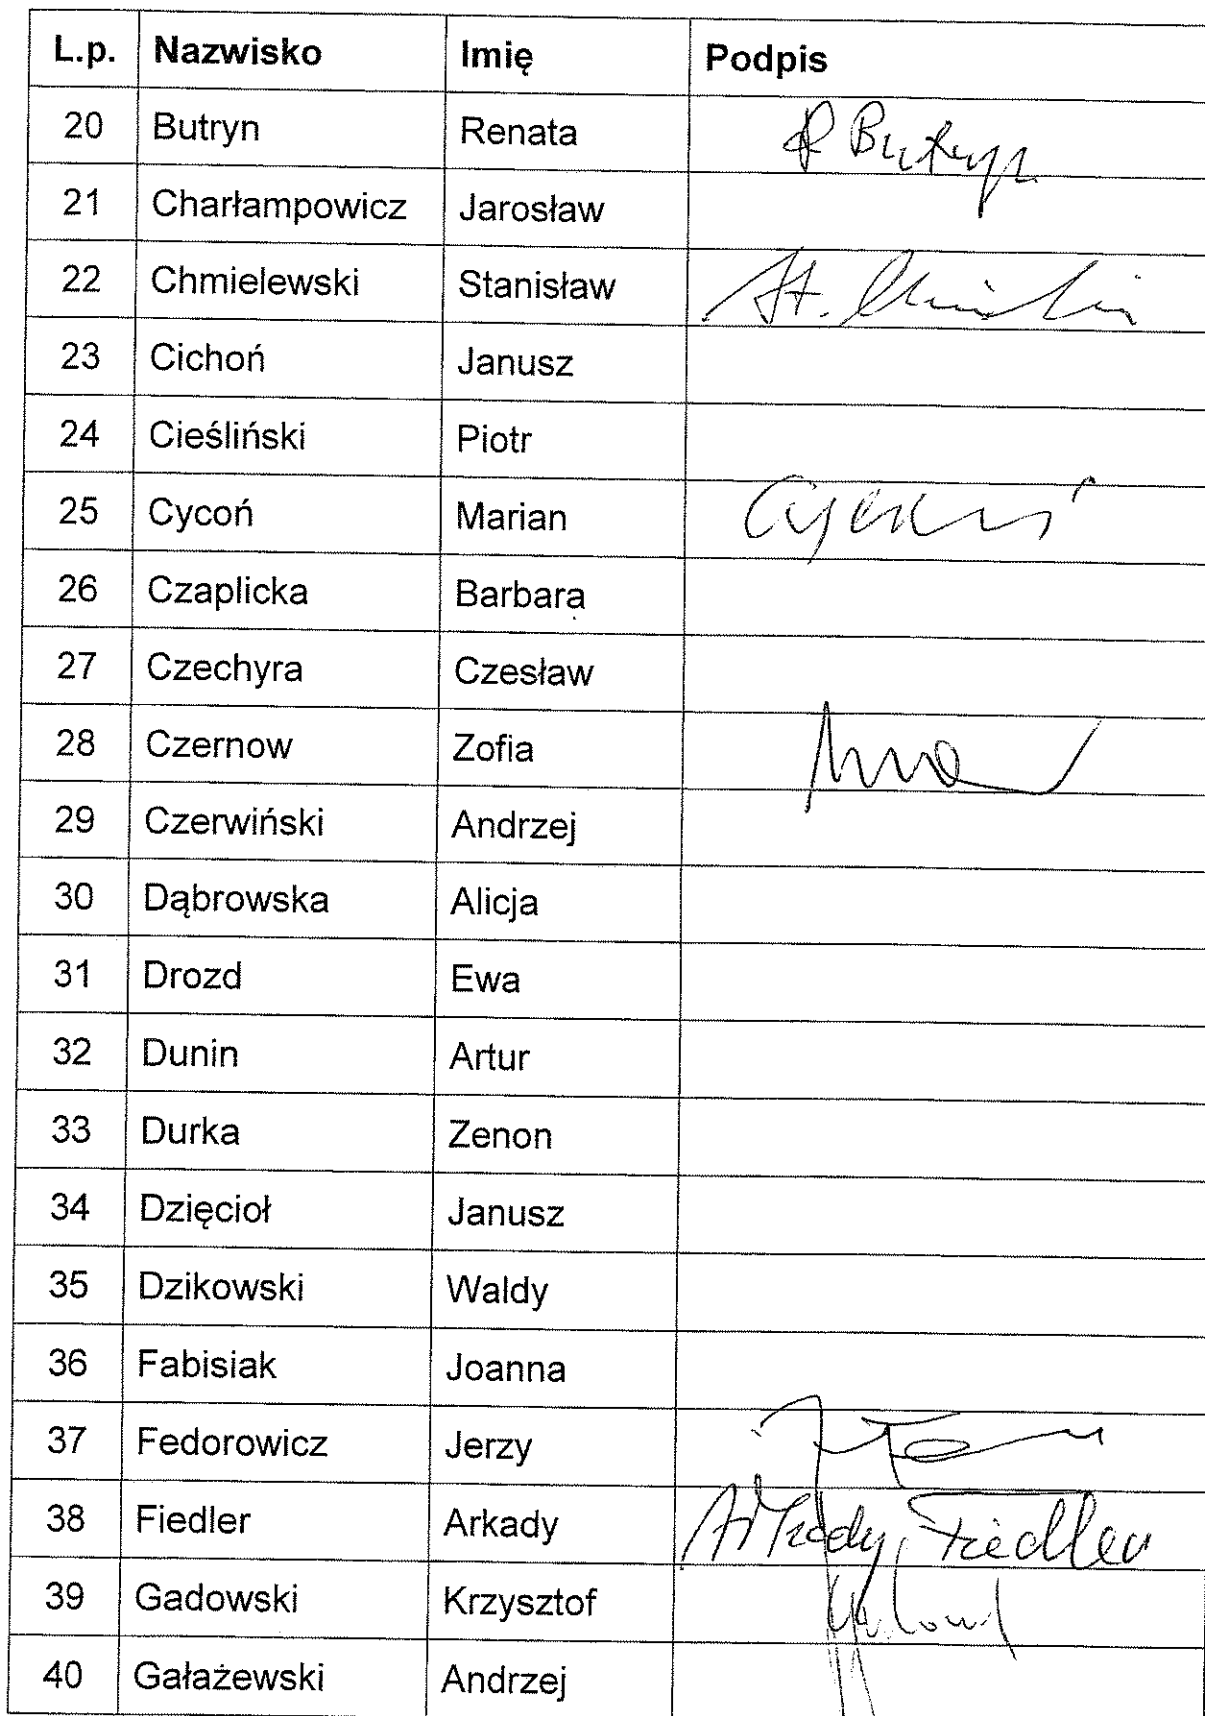 L.p. Nazwisko Imię Podpis
20 Butryn Renata R Butryn
21 Charłampowicz Jarosław
22 Chmielewski Stanisław St.
23 Cichoń Janusz
24 Cieśliński Piotr
25 Cycoń Marian
26 Czaplicka Barbara
27 Czechyra Czesław
28 Czernow Zofia
29 Czerwiński Andrzej
30 Dąbrowska Alicja
31 Drozd Ewa
32 Dunin Artur
33 Durka Zenon
34 Dzięcioł Janusz
35 Dzikowski Waldy
36 Fabisiak Joanna
37 Fedorowicz Jerzy
38 Fiedler Arkady Arkady Fiedler
39 Gadowski Krzysztof
40 Gałażewski Andrzej